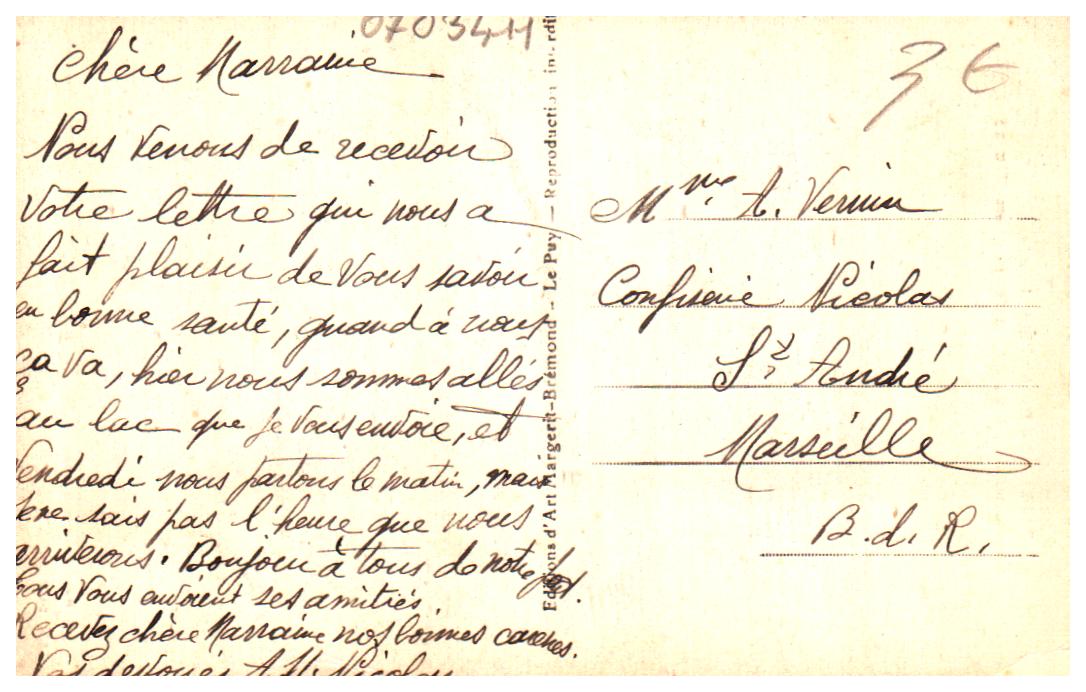 0703411
Chère Marraine
Nous venons de recevoir
votre lettre qui nous a
fait plaisir de vous savoir
en bonne santé, quand à nous
ça va, hier nous sommes allés
au lac que je vous envoie, et
vendredi nous partons le matin, mais
je ne sais pas l'heure que nous
arriverons. Bonjour à tous de notre part.
tous vous envoient ses amitiés.
Recevez chère Marraine nos bonnes caresses.
Vos dévoués A.M. Nicolas
Editions d'Art Margerit-Brémond - Le Puy - Reproduction interdite
3 €
Mme A. Vernin
Confiserie Nicolas
St André
Marseille
B. d. R.